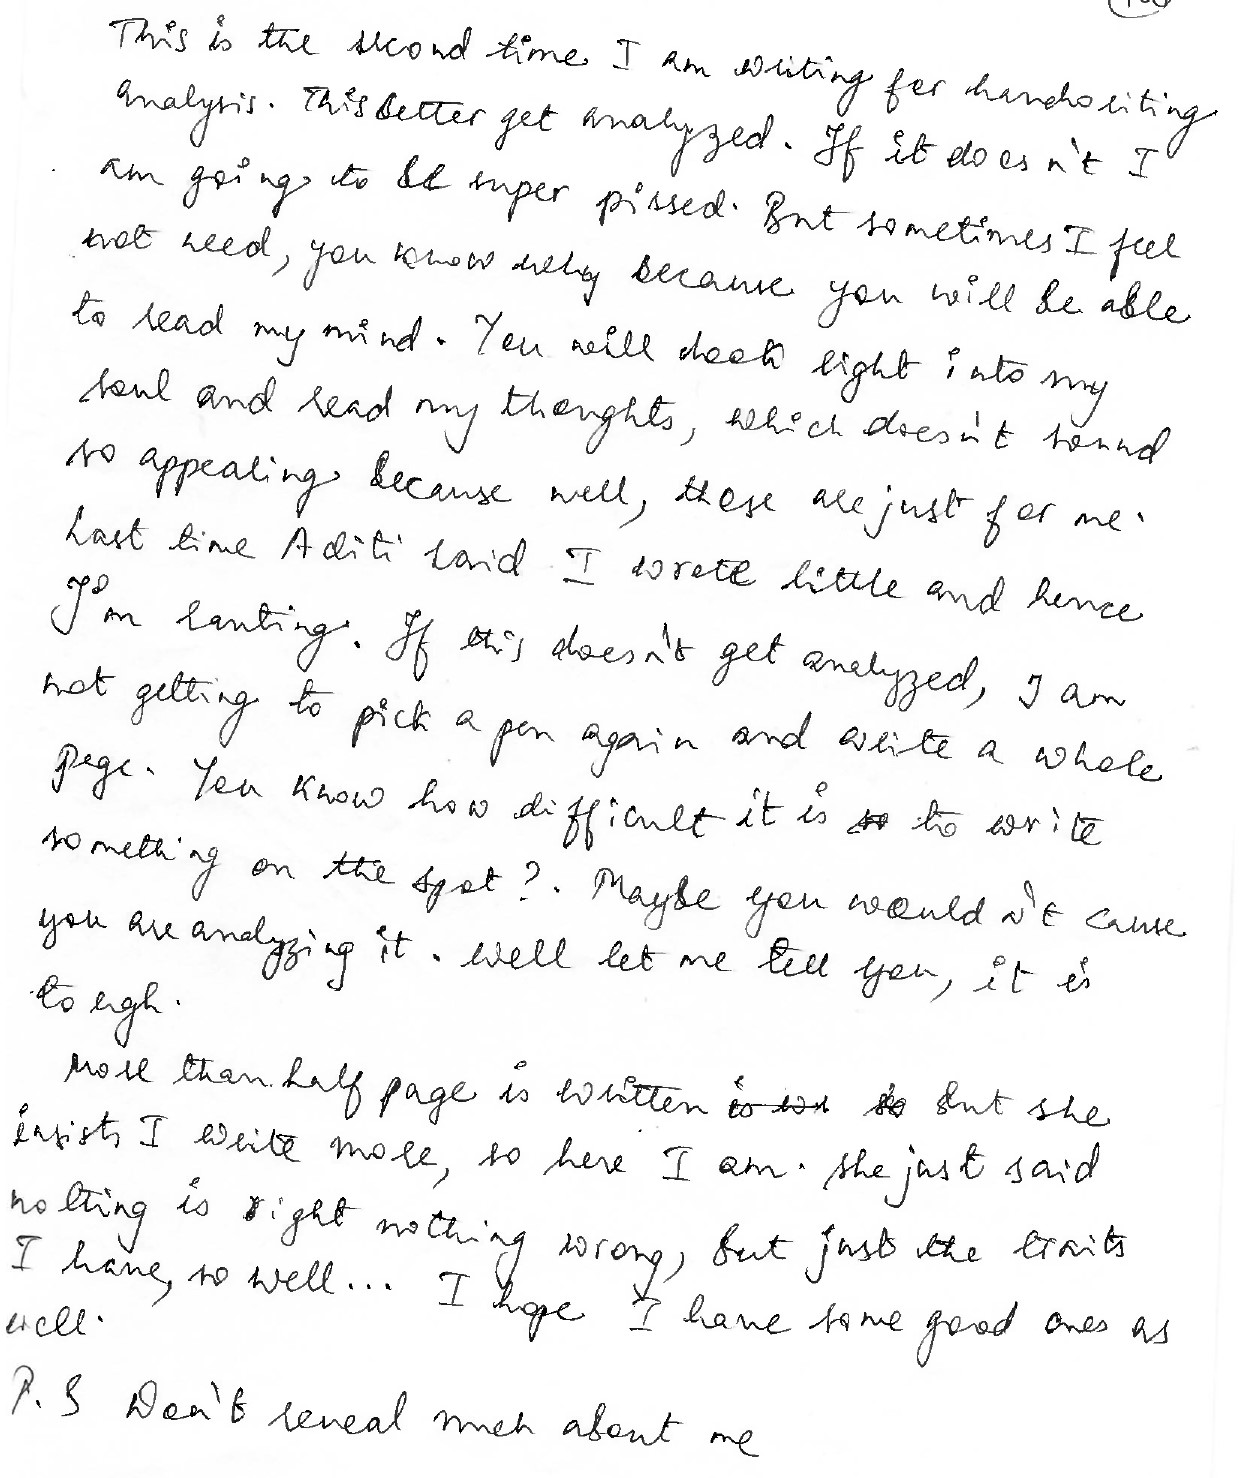 This is the second time I am writing for handwriting
analysis. This better get analyzed. If it doesn't I
am going to be super pissed. But sometimes I feel
not need, you know why because you will be able
to read my mind. You will look right into my
soul and read my thoughts, which doesn't sound
so appealing because well, these are just for me.
Last time Aditi said I wrote little and hence
I'm ranting. If this doesn't get analyzed, I am
not getting to pick a pen again and write a whole
page. You know how difficult it is to write
something on the spot?. Maybe you wouldn't cause
you are analyzing it. Well let me tell you, it is
tough.
More than half page is written but she
insists I write more, so here I am. She just said
nothing is right nothing wrong, but just the traits
I have, so well... I hope I have some good ones as
well.
P.S Don't reveal much about me